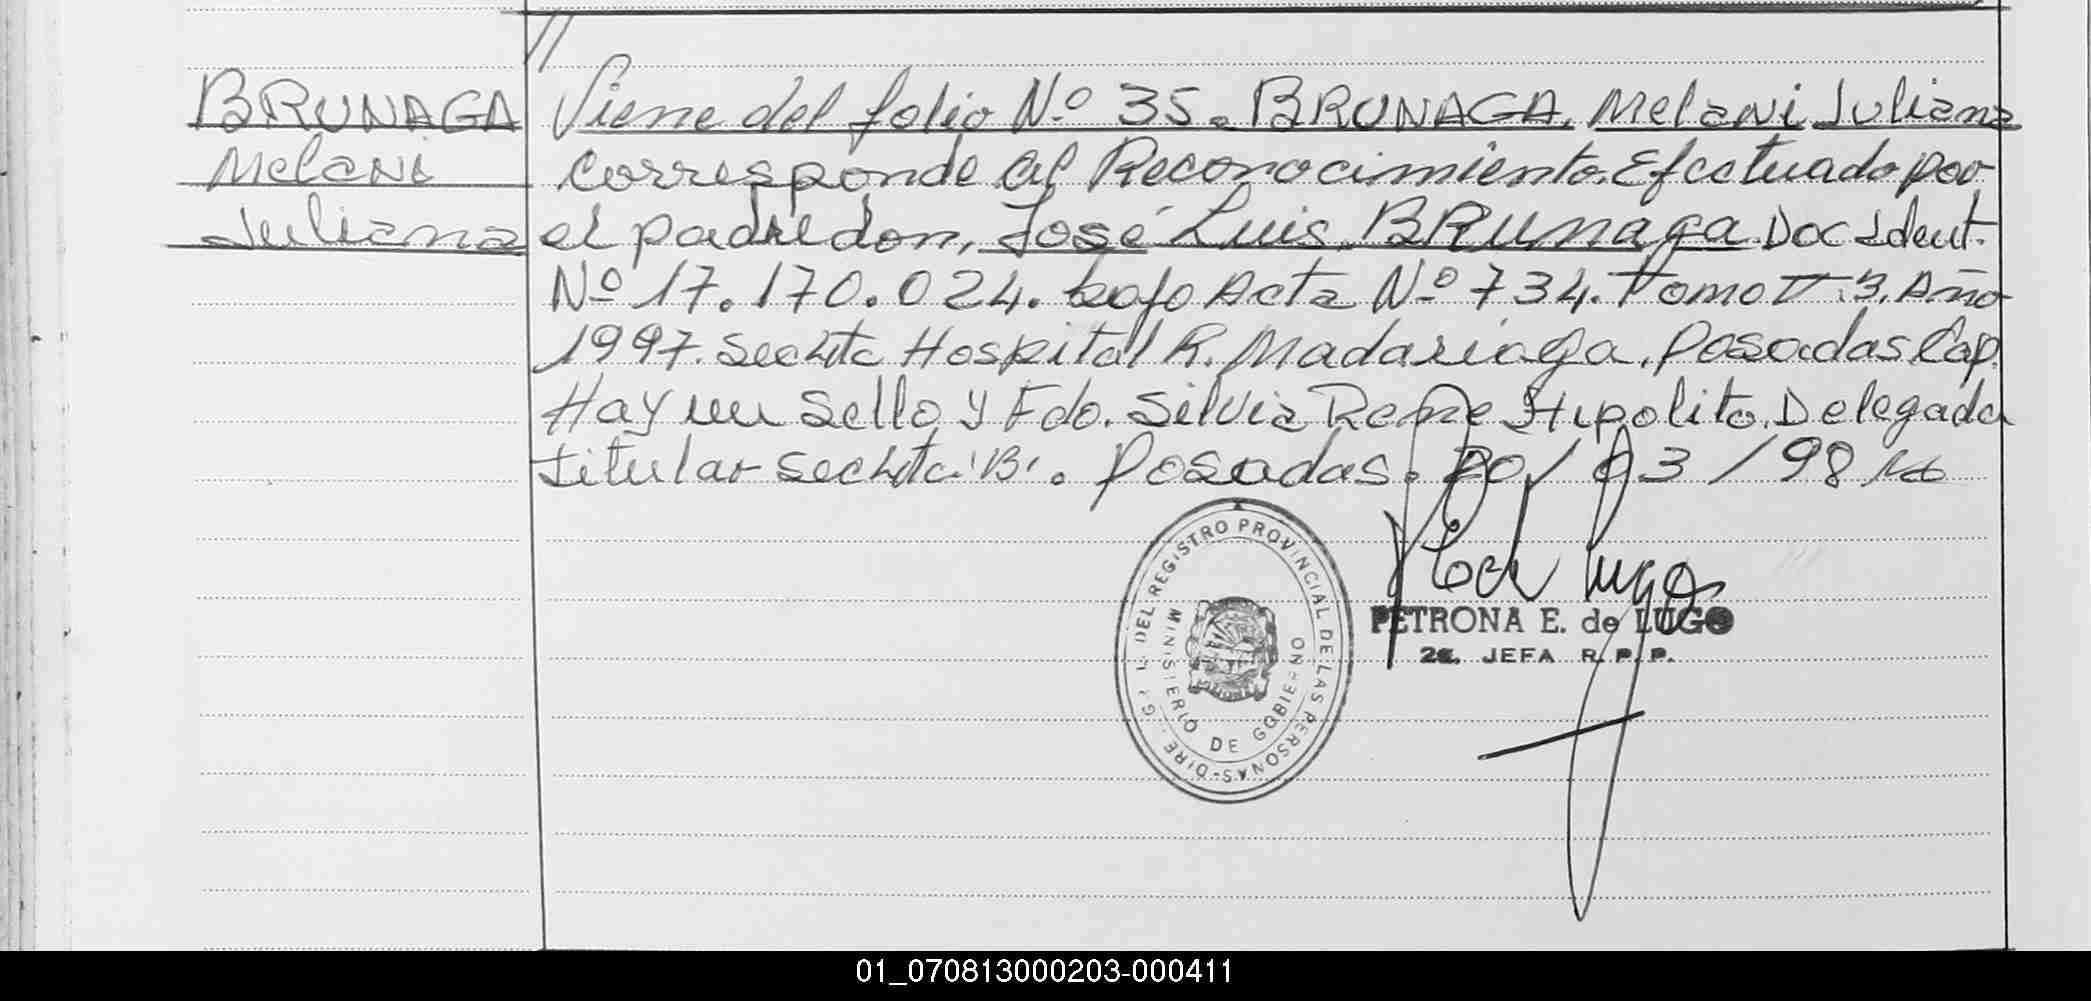 //
BRUNAGA
Melani
Juliana
Viene del folio Nº 35. BRUNAGA, Melani Juliana
corresponde al Reconocimiento. Efectuado por
el padre don, José Luis BRUNAGA. Doc Ident.
Nº 17.170.024. bajo Acta Nº 734. Tomo II. 3. Año
1997. Sec Hospital R. Madariaga. Posadas Cap.
Hay un sello y Fdo. Silvia Rene Hipolito. Delegada
titular 'B'. Posadas. 20/03/98
REGISTRO PROVINCIAL DE LAS PERSONAS-DIRE. G DEL
MINISTERIO DE GOBIERNO
PETRONA E. de LUGO
2a. JEFA R. P. P.
01_070813000203-000411